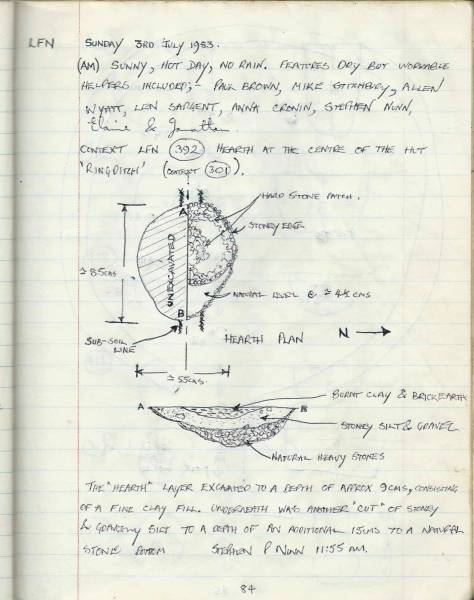 LFN
SUNDAY 3RD JULY 1983.
(AM) SUNNY, HOT DAY, NO RAIN. FEATURES DRY BUT WORKABLE
HELPERS INCLUDED;- PAUL BROWN, MIKE ALLEN
WYATT, LEN SARGENT, ANNA CRONIN, STEPHEN NUNN,
Elaine & Jonathan.
CONTEXT LFN (392) HEARTH AT THE CENTRE OF THE HUT
'RINGDITCH' (CONTEXT (301)).
HARD STONE PATCH.
A
STONEY EDGE
UNEXCAVATED
≃85CMS
NATURAL LEVEL @ ≃ 4½ CMS
B
SUB-SOIL
LINE
HEARTH PLAN
N
≃55CMS.
BURNT CLAY & BRICKEARTH
A
B
STONEY SILT & GRAVEL
NATURAL HEAVY STONES
THE "HEARTH" LAYER EXCAVATED TO A DEPTH OF APPROX 9CMS, CONSISTING
OF A FINE CLAY FILL. UNDERNEATH WAS ANOTHER "CUT" OF STONEY
& GRAVELLY SILT TO A DEPTH OF AN ADDITIONAL 15CMS TO A NATURAL
STONE BOTTOM STEPHEN P NUNN 11:55 AM.
84